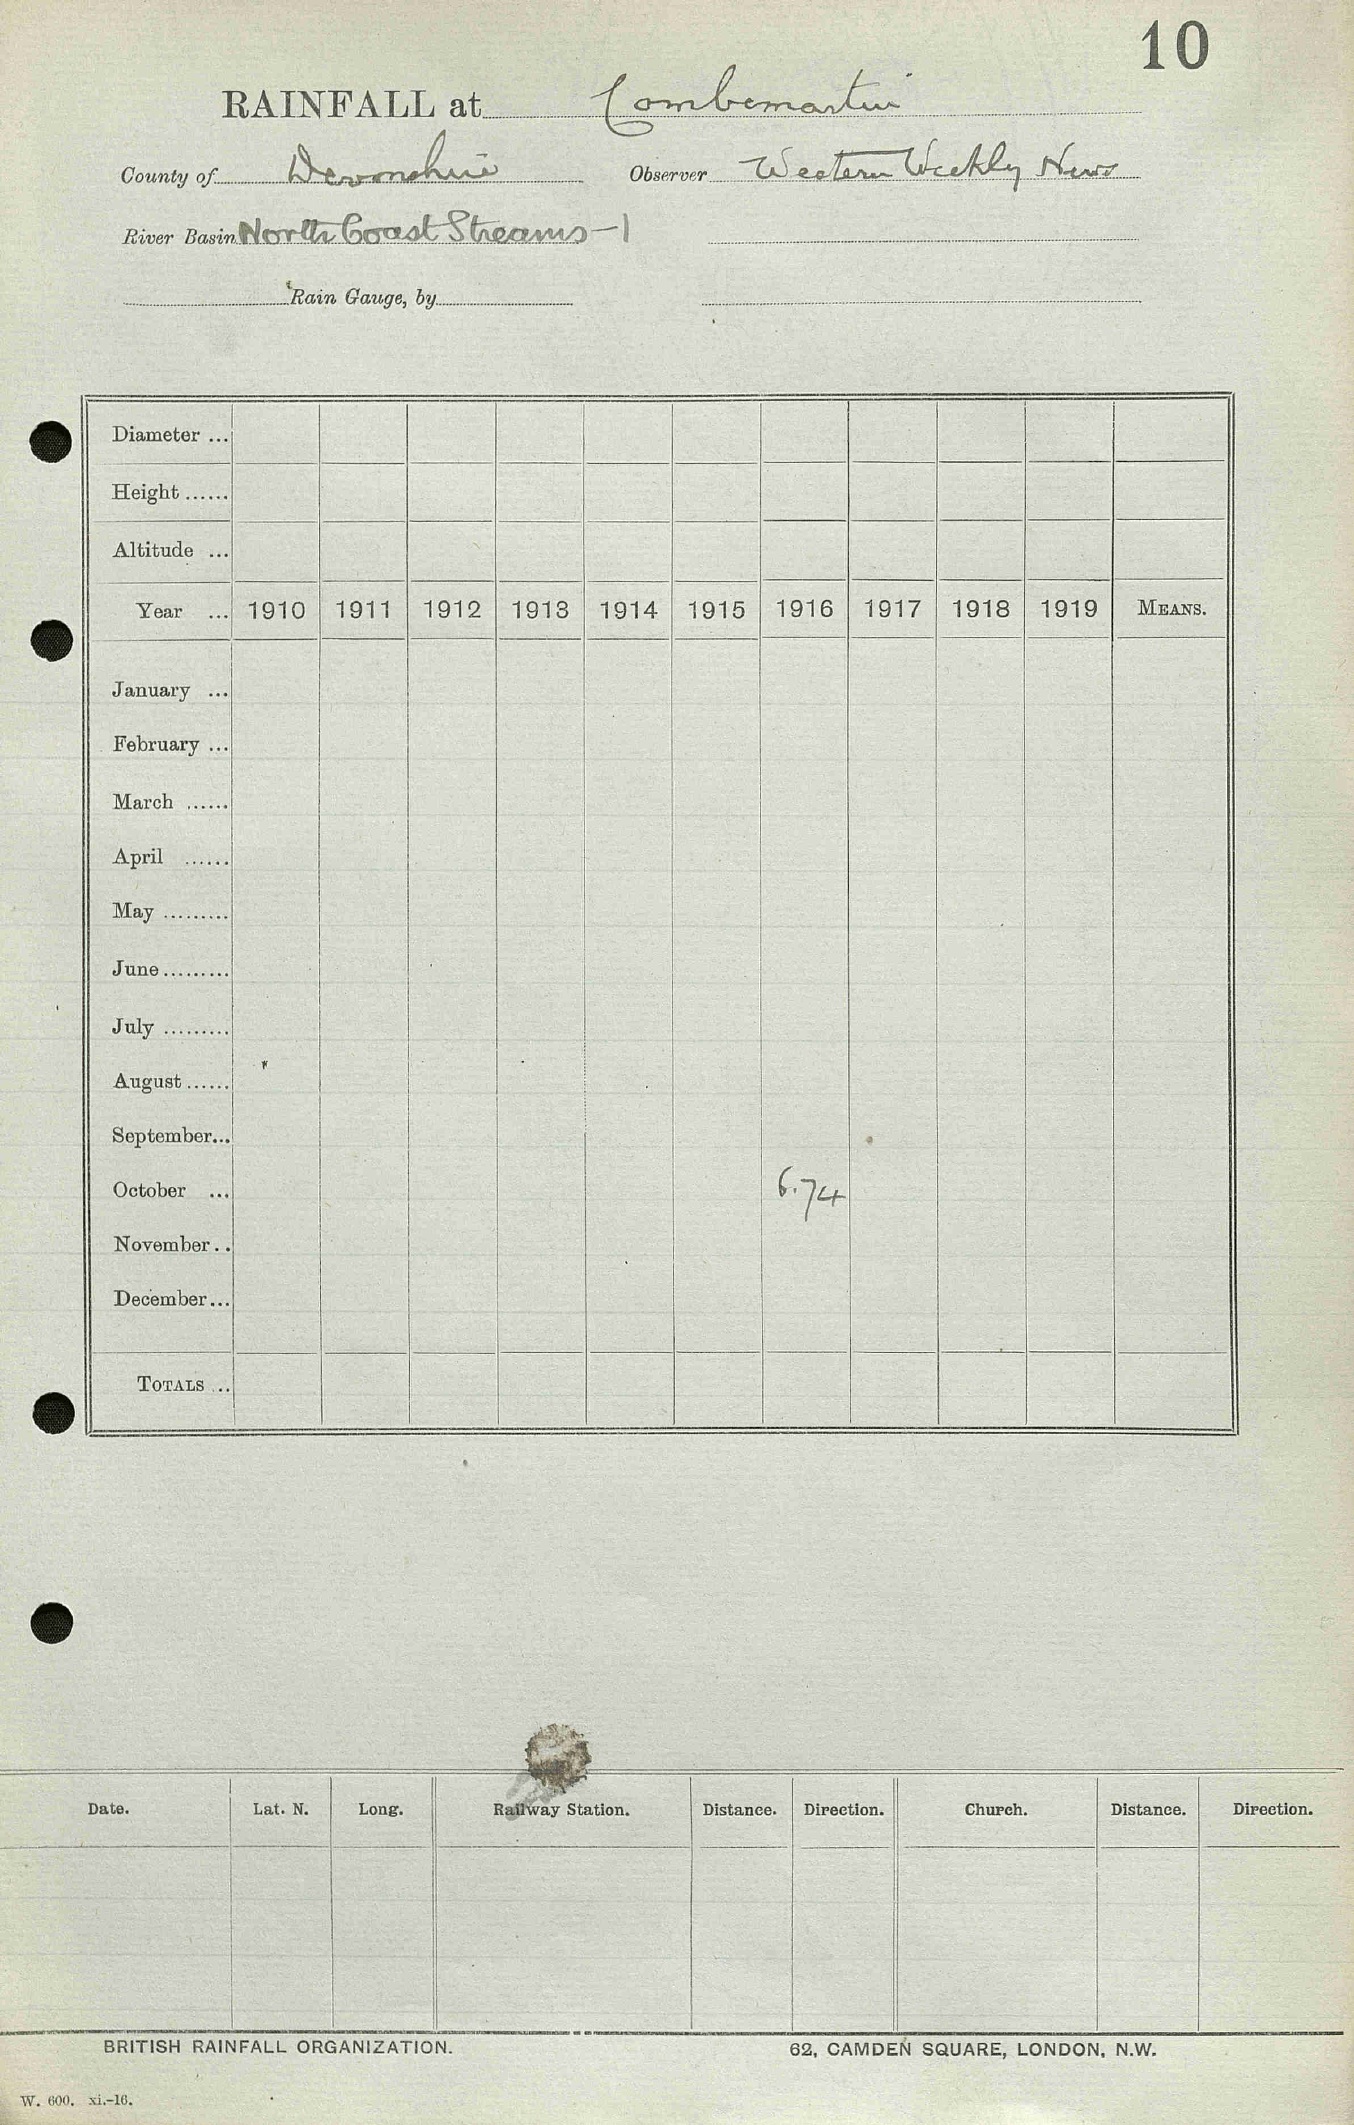 10
RAINFALL at Combemartin
County of Devonshire Observer Western Weekly News
River Basin North Coast Streams - 1
Rain Gauge, by
Diameter ...
Height ......
Altitude ...
Year ... 1910 1911 1912 1913 1914 1915 1916 1917 1918 1919 MEANS.
January ...
February ...
March ......
April ......
May .........
June .........
July .........
August ......
September...
October ... 6.74
November ..
December...
TOTALS ...
Date. Lat. N. Long. Railway Station. Distance. Direction. Church. Distance. Direction.
BRITISH RAINFALL ORGANIZATION. 62, CAMDEN SQUARE, LONDON, N.W.
W. 600. xi.-16.